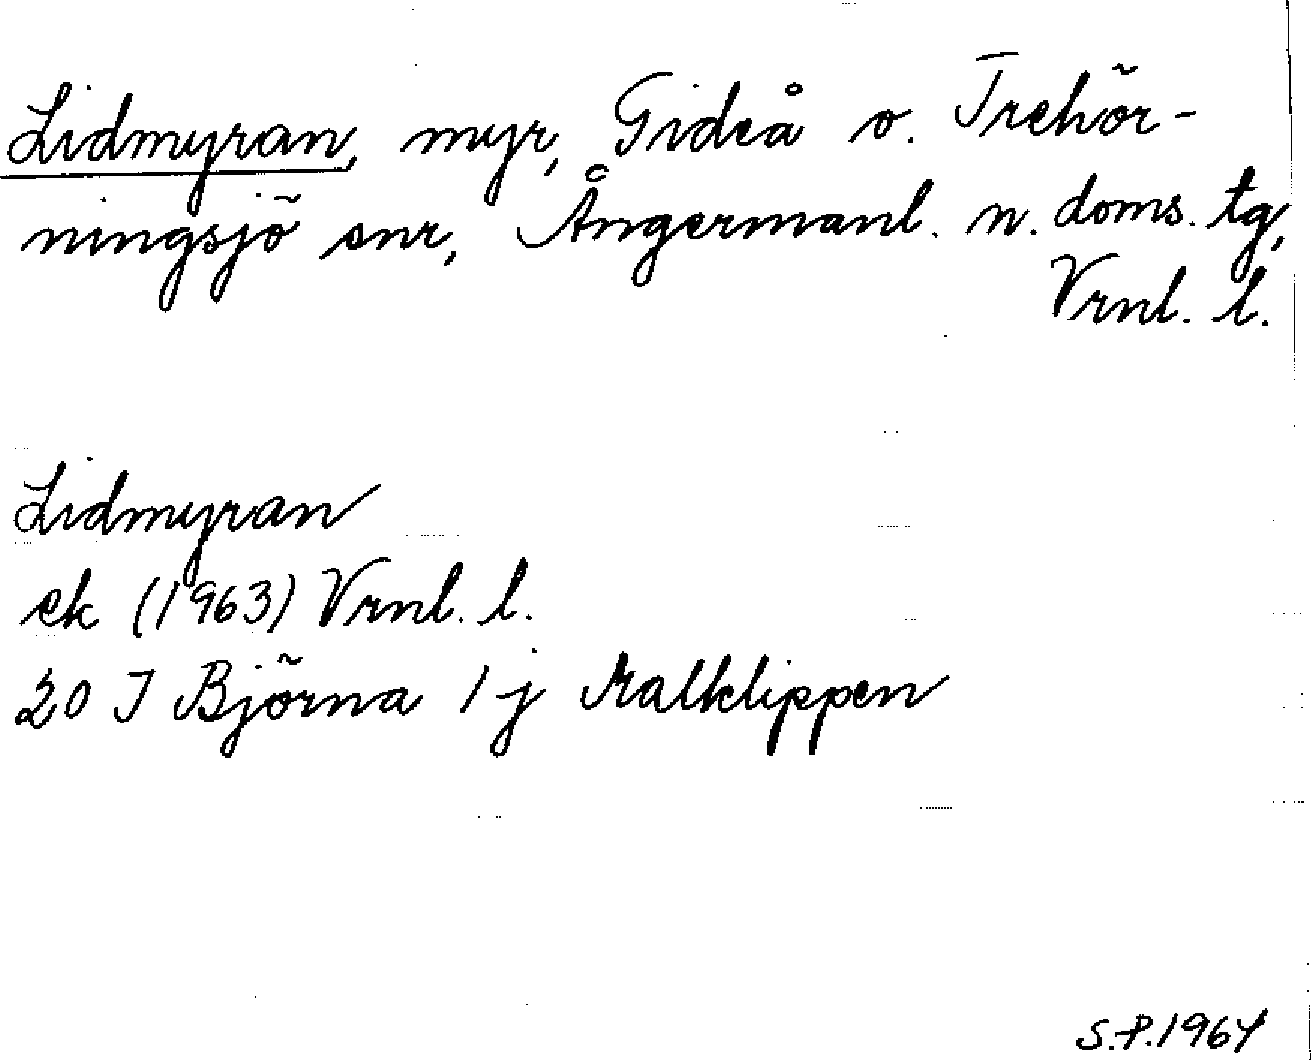 Lidmyran, myr, Gideå o. Trehör-
ningsjö snr, Ångermanl. n. doms. tg,
Vrnl. l.
Lidmyran
ek (1963) Vrnl. l.
20 I Björna 1 j Kalklippen
S.P. 1964